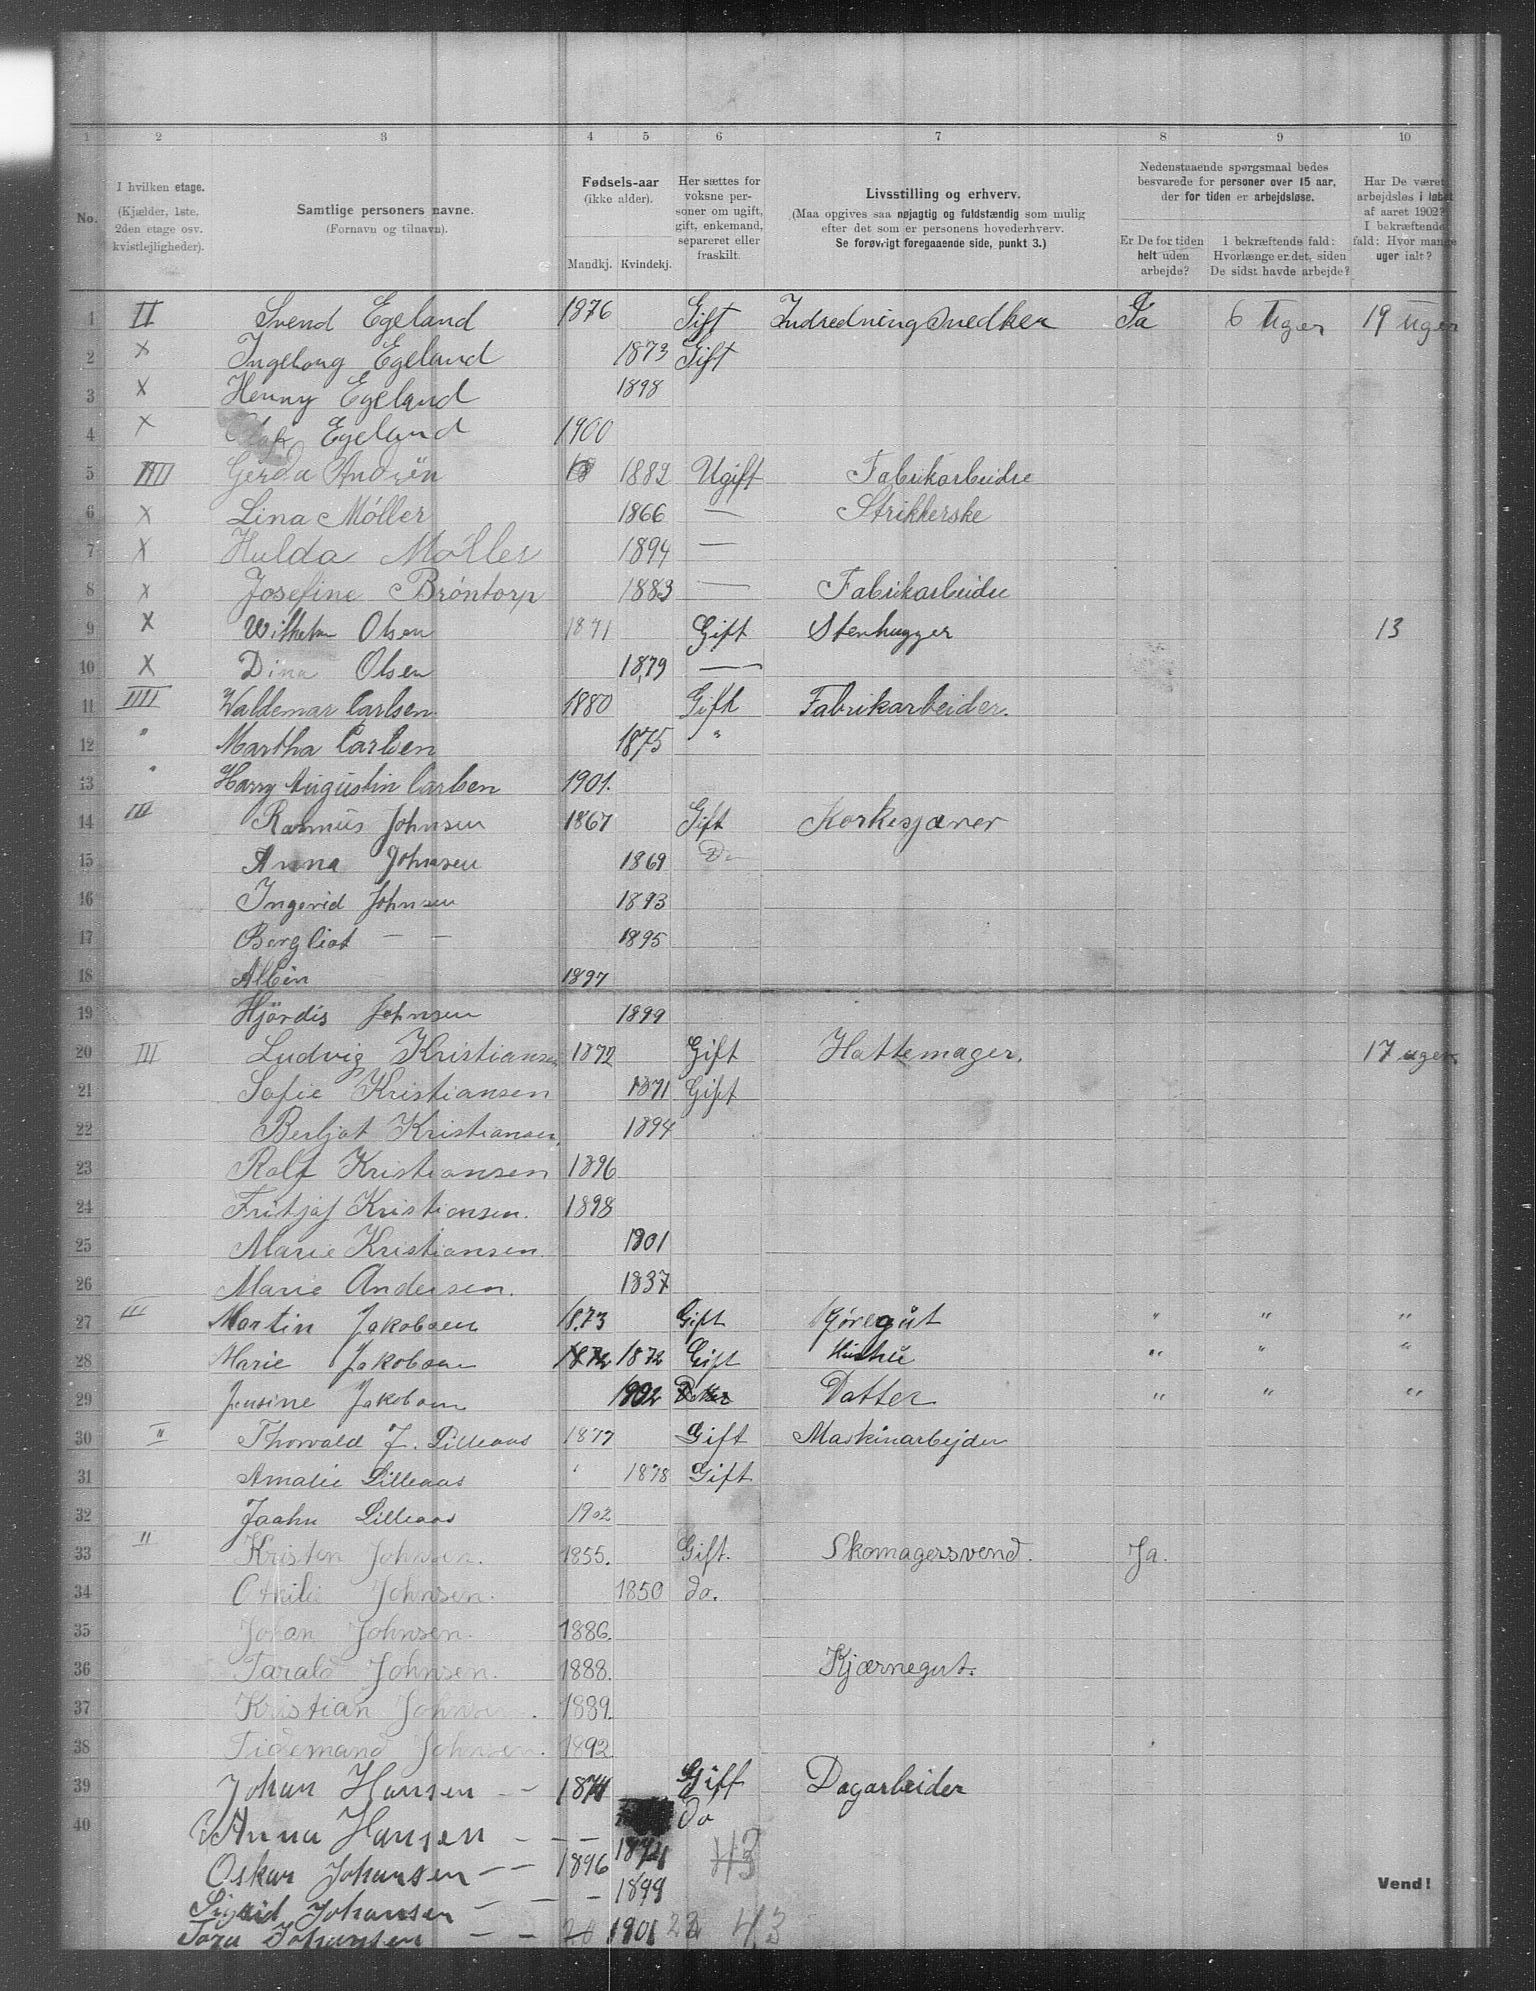 1 2 3 4 5 6 7 8 9 10
No.
I hvilken etage.
(Kjælder, 1ste, 2den etage osv. kvistlejligheder).
Samtlige personers navne.
(Fornavn og tilnavn).
Fødsels-aar
(ikke alder).
Mandkj. Kvindekj.
Her sættes for voksne personer om ugift, gift, enkemand, separeret eller fraskilt.
Livsstilling og erhverv.
(Maa opgives saa nøjagtig og fuldstændig som mulig efter det som er personens hovederhverv.
Se forøvrigt foregaaende side, punkt 3.)
Nedenstaaende spørgsmaal bedes besvarede for personer over 15 aar, der for tiden er arbejdsløse.
Er De for tiden helt uden arbejde?
I bekræftende fald: Hvorlænge er det, siden De sidst havde arbejde?
Har De været arbejdsløs i løbet af aaret 1902? I bekræftende fald: Hvor mange uger ialt?
1 II Svend Egeland 1876 Gift Indredningsnedker Ja 6 Uger 19 uger
2 x Ingeborg Egeland 1873 Gift
3 x Henny Egeland 1898
4 x Olaf Egeland 1900
5 IIII Gerda Andrën 1882 Ugift Fabrikarbeidre
6 x Lina Møller 1866 — Strikkerske
7 x Hulda Møller 1894 —
8 x Josefine Bröntorp 1883 — Fabrikarbeider
9 x Wilhelm Olsen 1871 Gift Stenhugger 13
10 x Dina Olsen 1879 —
11 IIII Waldemar Carlsen 1880 Gift Fabrikarbeider.
12 " Martha Carlsen 1875 "
13 " Harry Augustin Carlsen 1901.
14 III Rasmus Johnsen 1867 Gift Korkesjærer
15 Anna Johnsen 1869 Do
16 Ingerid Johnsen 1893
17 Bergliot — — 1895
18 Albin 1897
19 Hjördis Johnsen 1899
20 III Ludvig Kristiansen 1872 Gift Hattemager. 17 uger
21 Sofie Kristiansen 1871 Gift
22 Berljot Kristiansen, 1894
23 Rolf Kristiansen 1896
24 Fritjof Kristiansen. 1898
25 Marie Kristiansen. 1901
26 Marie Andersen. 1837
27 III Martin Jakobsen 1873 Gift Kjøregut " " "
28 Marie Jakobsen 1872 1872 Gift Hustru " " "
29 Jensine Jakobsen 1902 Datter " " "
30 II Thorvald J. Lilleaas 1877 Gift Maskinarbejder
31 Amalie Lilleaas 1878 Gift
32 Lilleaas 1902
33 II Kristen Johnsen. 1855. Gift. Skomagersvend. Ja.
34 Othilie Johnsen. 1850 do.
35 Johan Johnsen. 1886.
36 Tarald Johnsen. 1888. Kjærnegut.
37 Kristian Johnsen. 1889.
38 Tidemand Johnsen. 1892
39 Johan Hansen — 1874 Gift Dagarbeider
40 Anna Hansen — — — 1874 Do
Oskar Johansen — — 1896 43
Sigrid Johansen — — — 1899
Vend!
Tora Johansen — — 20 1901 23 43